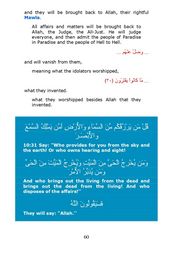 and they will be brought back to Allah, their rightful
Mawla.
All affairs and matters will be brought back to
Allah, the Judge, the All-Just. He will judge
everyone, and then admit the people of Paradise
in Paradise and the people of Hell to Hell.
...وَضَلَّ عَنْهُم...
and will vanish from them,
meaning what the idolators worshipped,
...مَّا كَانُوا يَفْتَرُونَ (٣٠)
what they invented.
what they worshipped besides Allah that they
invented.
قُلْ مَن يَرْزُقُكُم مِّنَ السَّمَاءِ وَالأَرْضِ أَمَّن يَمْلِكُ السَّمْعَ
والأَبْصَارَ
10:31 Say: "Who provides for you from the sky and
the earth! Or who owns hearing and sight!
وَمَن يُخْرِجُ الْحَيَّ مِنَ الْمَيِّتِ وَيُخْرِجُ الْمَيِّتَ مِنَ الْحَيِّ
وَمَن يُدَبِّرُ الأَمْرَ
And who brings out the living from the dead and
brings out the dead from the living! And who
disposes of the affairs!"
فَسَيَقُولُونَ اللّهُ
They will say: "Allah."
60